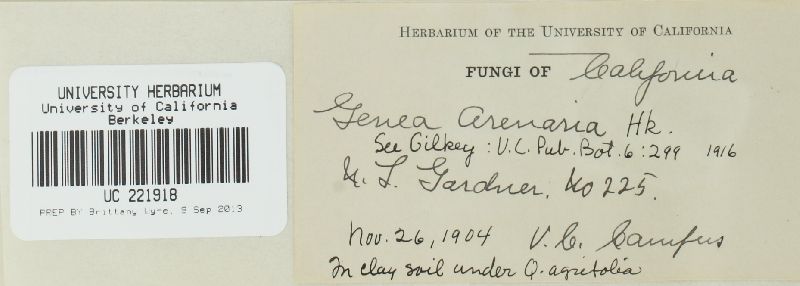 UNIVERSITY HERBARIUM
University of California
Berkeley
UC 221918
PREP BY Brittany Lyre, 9 Sep 2013
HERBARIUM OF THE UNIVERSITY OF CALIFORNIA
FUNGI OF California
Genea arenaria Hk.
See Gilkey: U.C. Pub. Bot. 6:299 1916
N. L. Gardner, No 225.
Nov. 26, 1904 U. C. Campus
In clay soil under Q. agrifolia